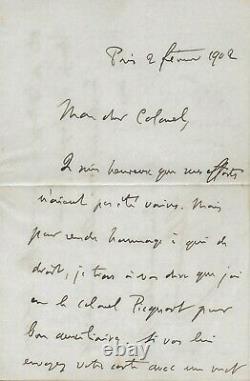 Paris 2 février 1902
Mon cher Colonel,
Je suis heureux que mes efforts
n'aient pas été vains. Mais
pour rendre hommage à qui de
droit, je tiens à vous dire que j'ai
eu le colonel Picquart pour
bon auxiliaire. Si vous lui
envoyez votre carte avec un mot
© thumbimg.com